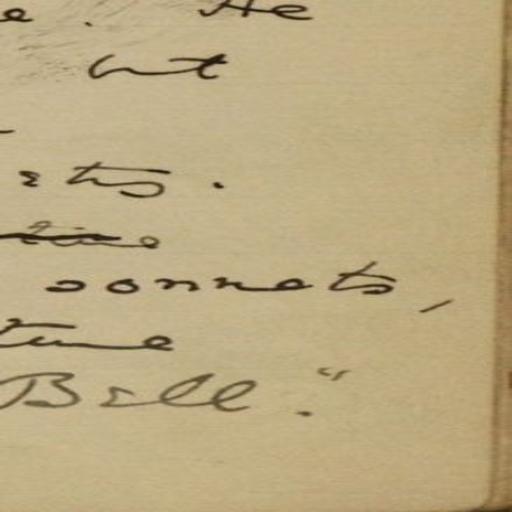 e. He
but
ets.
time
sonnets,
time
Bell."